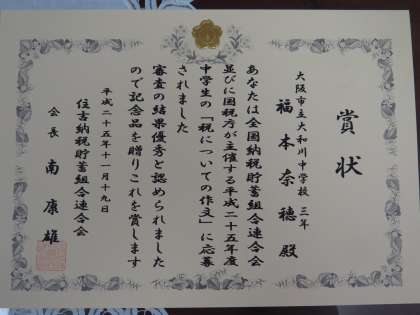 賞状
大阪市立大和川中学校 三年
福本奈穂 殿
あなたは全国納税貯蓄組合連合会
並びに国税庁が主催する平成二十五年度
中学生の「税についての作文」に応募
されました
審査の結果優秀と認められました
ので記念品を贈りこれを賞します
平成二十五年十一月十九日
住吉納税貯蓄組合連合会
会長 南康雄